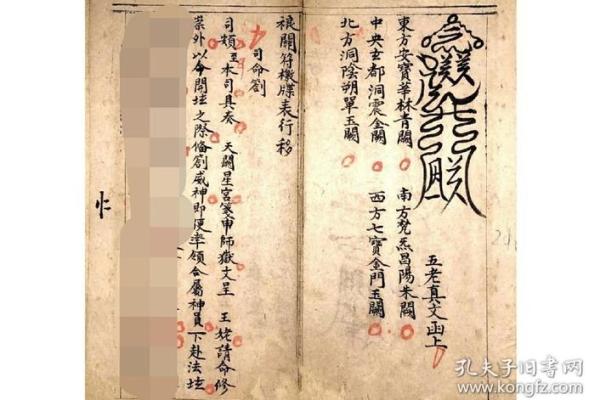 五老真文函上
東方安寶華林青闕
南方梵炁昌陽朱闕
中央玄都洞震金闕
西方七寶金門玉闕
北方洞陰朔單玉闕
禳關符檄牒表行移
司命劄
司頖至本司具奏 天闕星宮箋申師嶽文呈 王姥請命修
崇外以今開坛之際俻劄威神即便率領合屬神員下赴法坛
孔夫子旧书网
www.kongfz.com